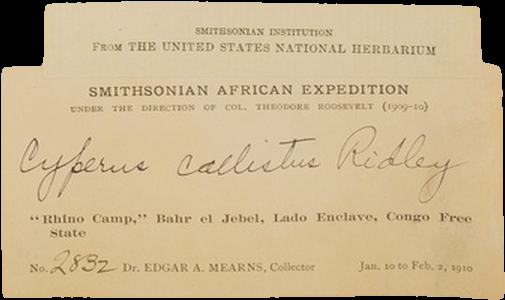 SMITHSONIAN INSTITUTION
FROM THE UNITED STATES NATIONAL HERBARIUM
SMITHSONIAN AFRICAN EXPEDITION
UNDER THE DIRECTION OF COL. THEODORE ROOSEVELT (1909-10)
Cyperus callistus Ridley
"Rhino Camp," Bahr el Jebel, Lado Enclave, Congo Free
State
No. 2832 Dr. EDGAR A. MEARNS, Collector Jan. 10 to Feb. 2, 1910